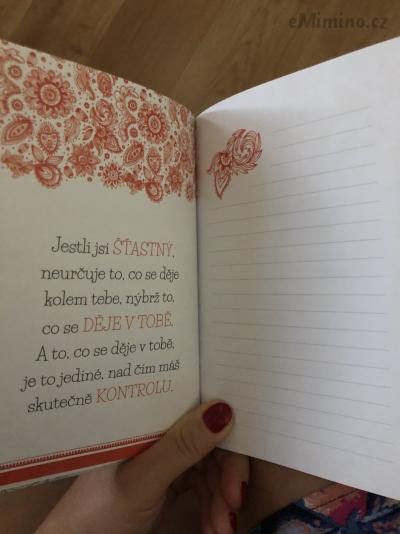 eMimino.cz
Jestli jsi ŠŤASTNÝ,
neurčuje to, co se děje
kolem tebe, nýbrž to,
co se DĚJE V TOBĚ.
A to, co se děje v tobě,
je to jediné, nad čím máš
skutečně KONTROLU.